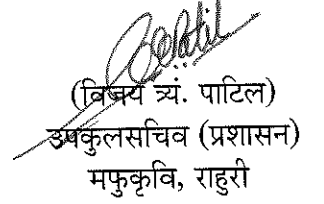 (विजय त्र्यं. पाटिल)
उपकुलसचिव (प्रशासन)
मफुकृवि, राहुरी